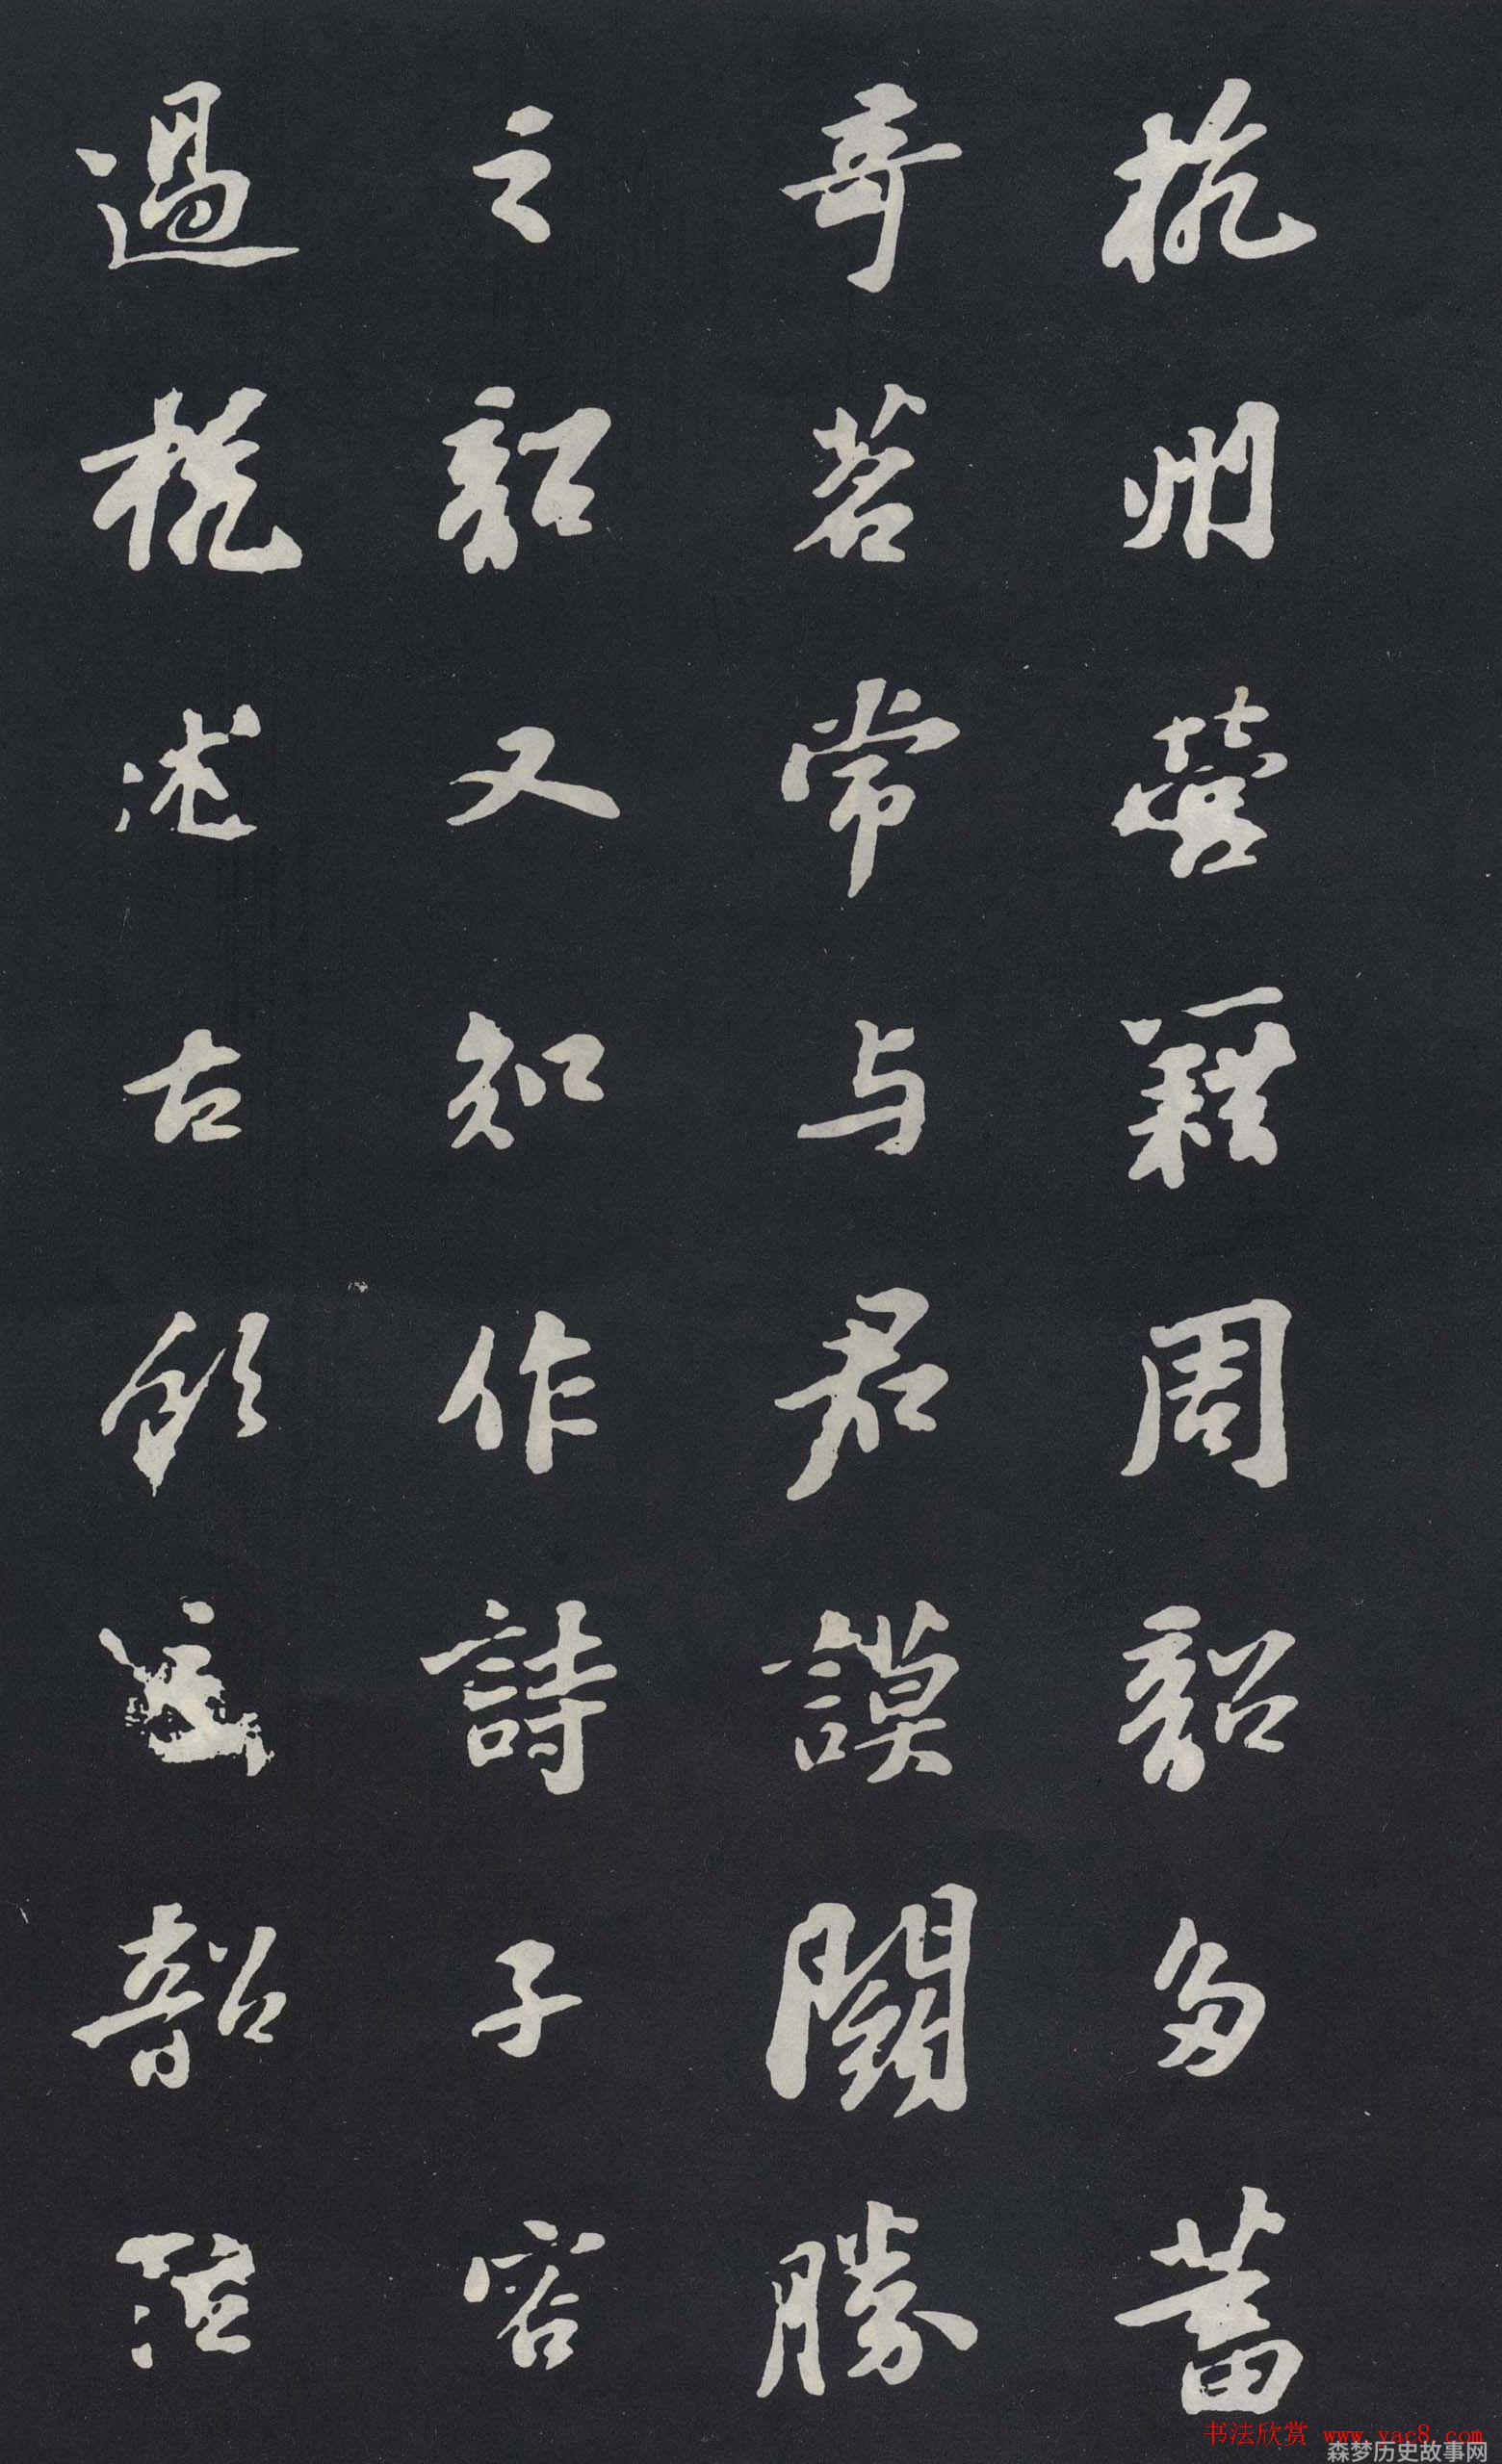 杭州營籍周韶多蓄
奇茗常与君謨鬪勝
之韶又知作詩子容
過杭述古飲之韶泣
书法欣赏 www.yac8.com
森梦历史故事网